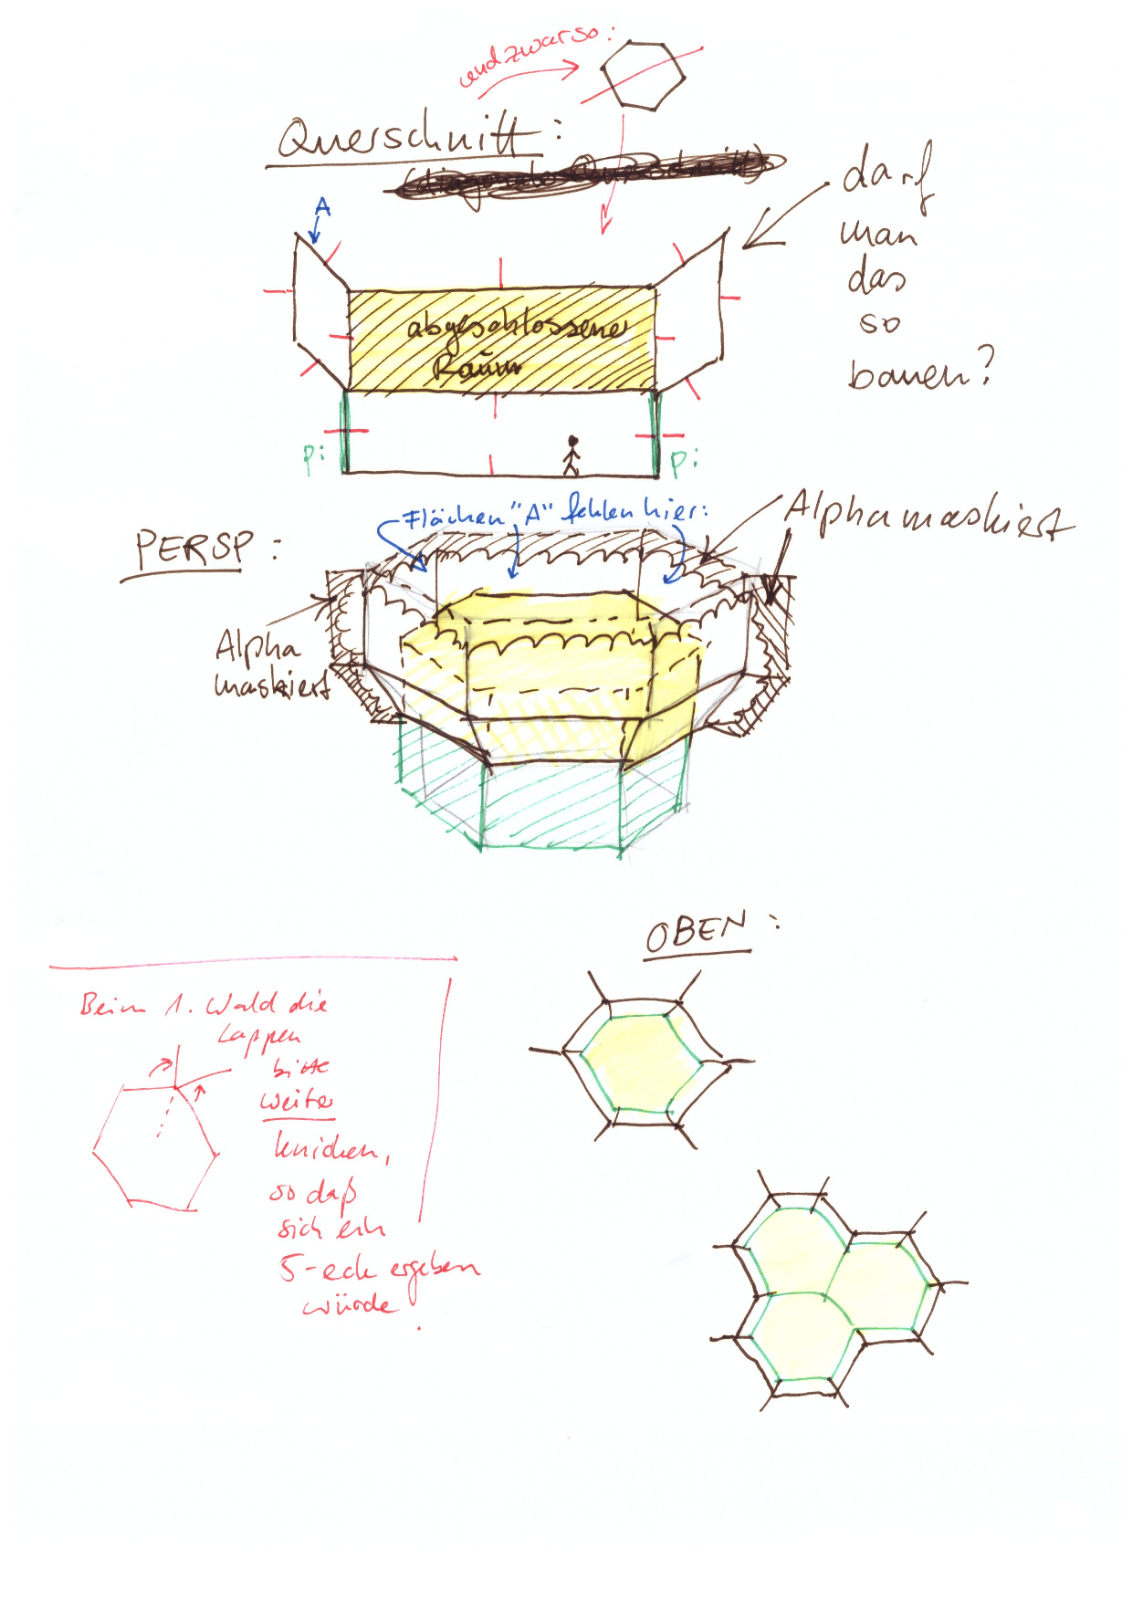 und zwar so:
Querschnitt:
(diagonaler Querschnitt)
A
darf
man
das
so
bauen?
abgeschlossener
Raum
p:
p:
Flächen "A" fehlen hier:
Alphamaskiert
PERSP:
Alpha
maskiert
OBEN:
Beim 1. Wald die
Lappen
bitte
weiter
knicken,
so daß
sich ein
5-eck ergeben
würde.